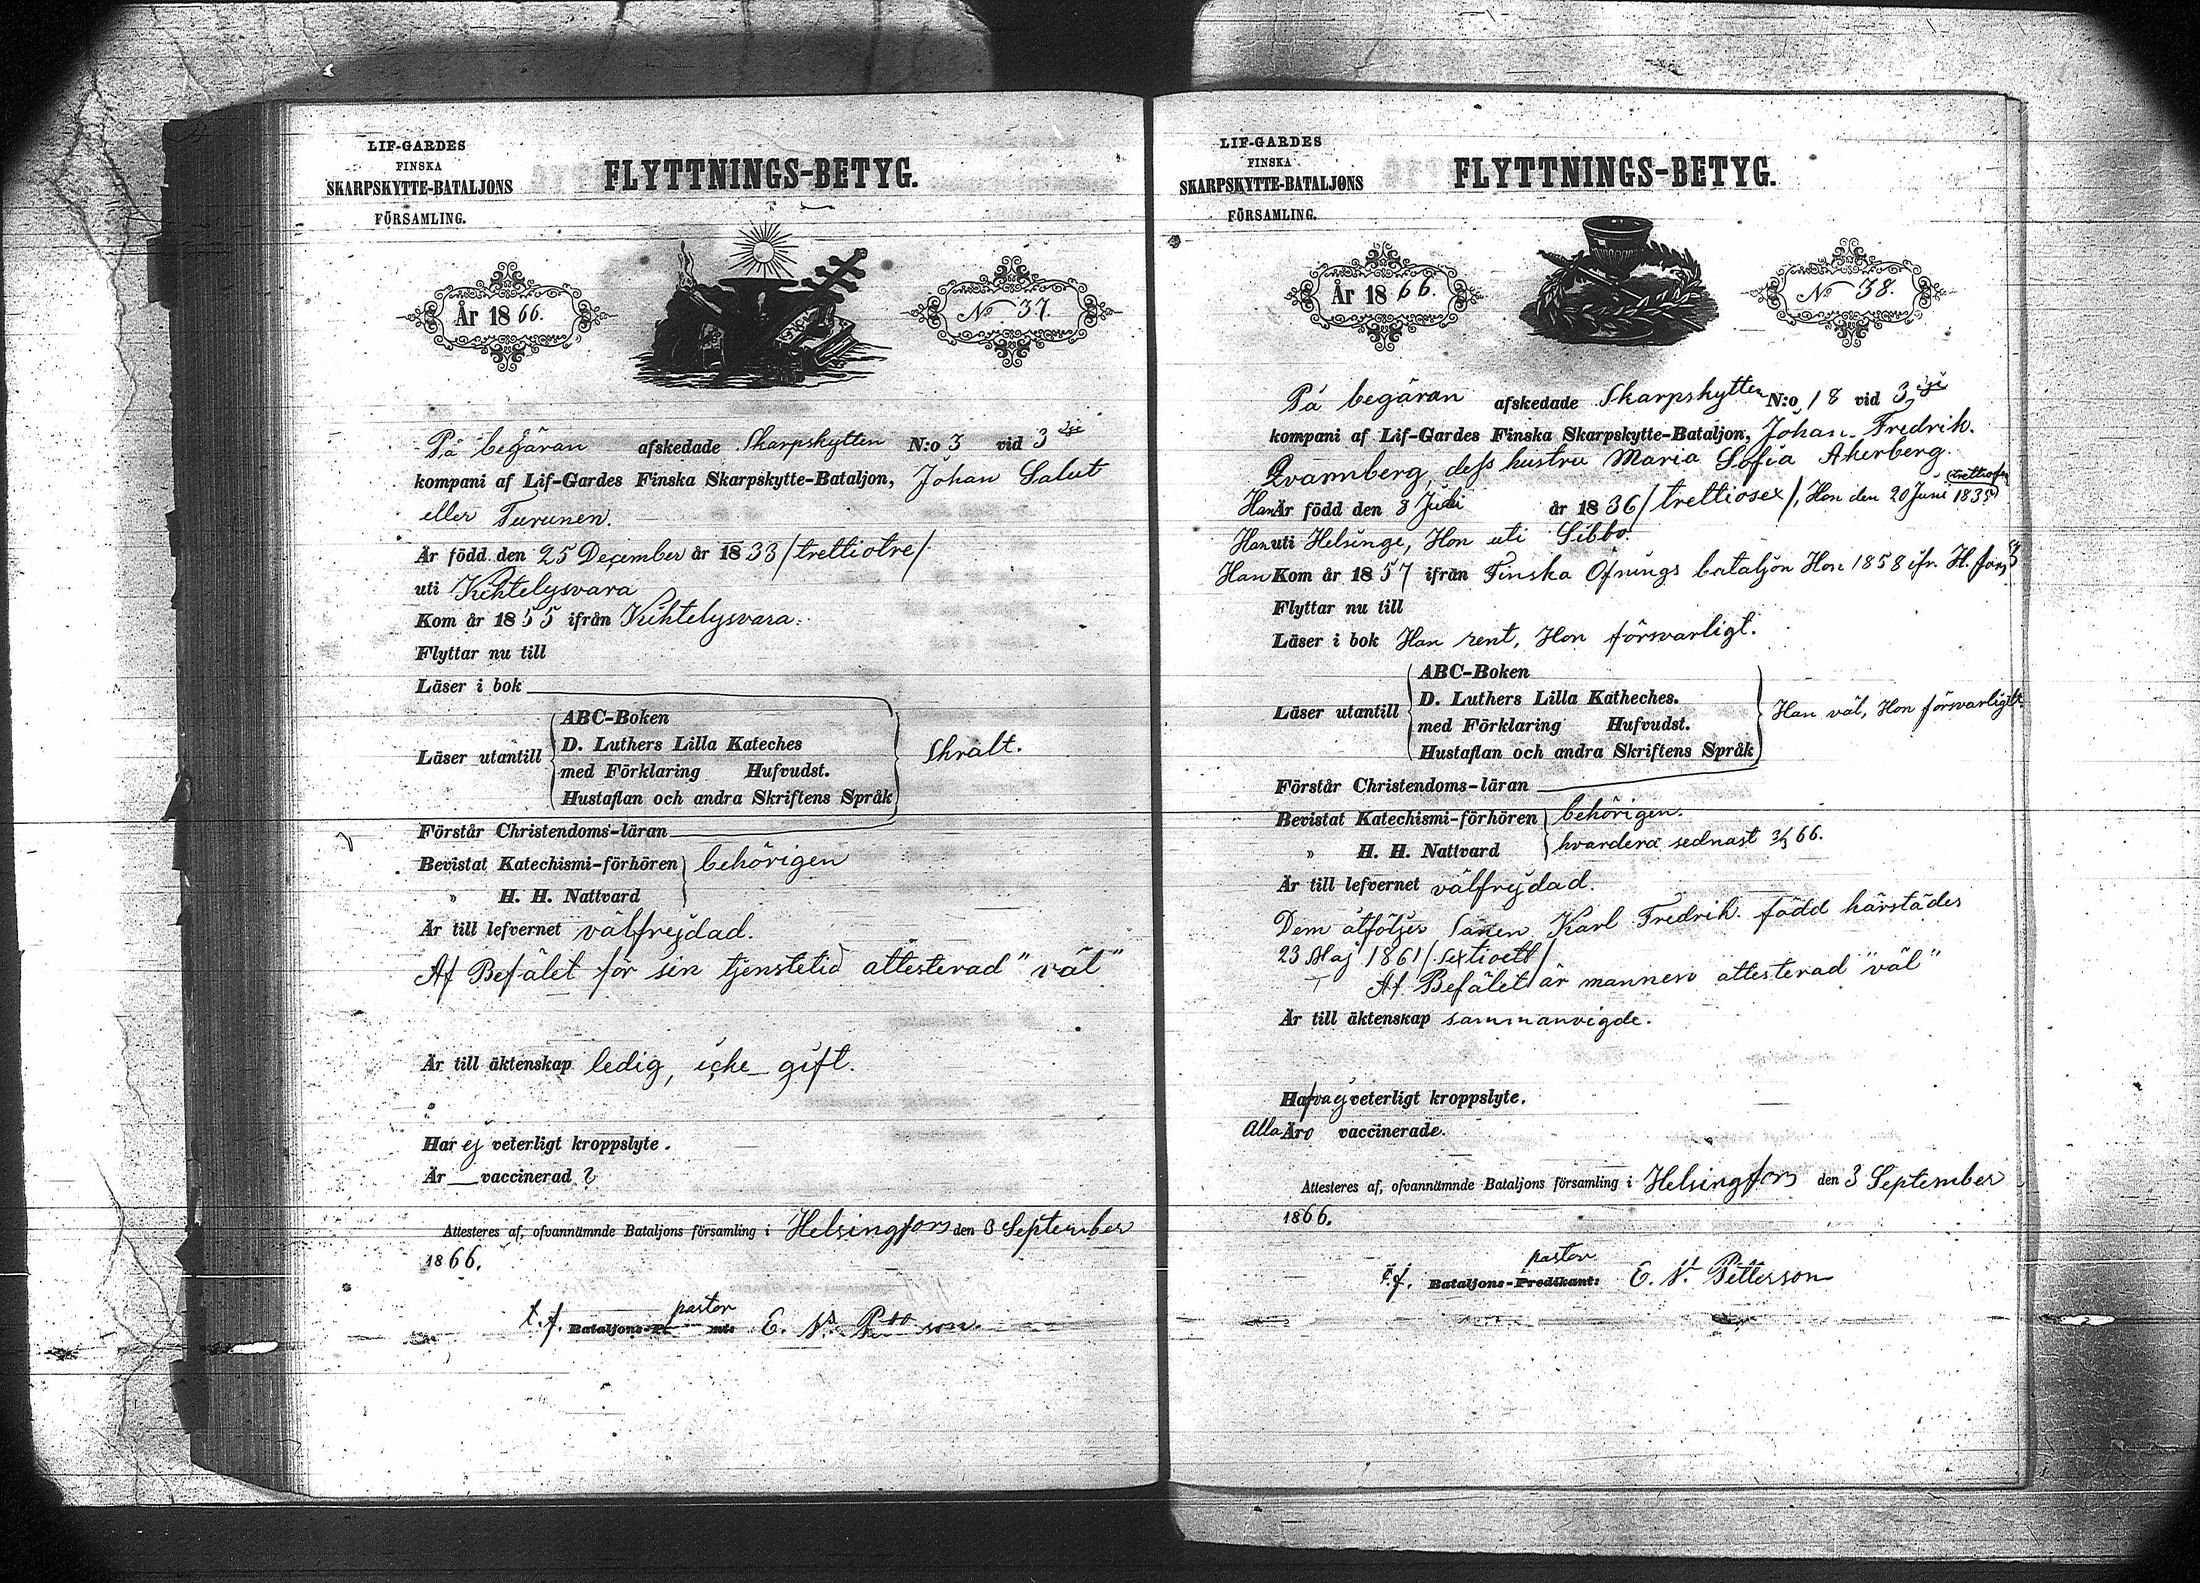 LIF-GARDES
FINSKA
SKARPSKYTTE-BATALJONS
FÖRSAMLING.
FLYTTNINGS-BETYG.
År 1866.
No 37.
På begäran afskedade Skarpskytten N:o 3 vid 3dje
kompani af Lif-Gardes Finska Skarpskytte-Bataljon, Johan Salut
eller Turunen.
Är född den 25 December år 1833 /trettiotre/
uti Kihtelysvara
Kom år 1855 ifrån Kihtelysvara.
Flyttar nu till
Läser i bok
Läser utantill
ABC-Boken
D. Luthers Lilla Kateches
med Förklaring Hufvudst.
Hustaflan och andra Skriftens Språk
Skralt.
Förstår Christendoms-läran
Bevistat Katechismi-förhören behörigen
" H. H. Nattvard
Är till lefvernet välfrejdad.
Af Befälet för sin tjenstetid attesterad "väl"
Är till äktenskap ledig, icke gift.
Har ej veterligt kroppslyte.
Är vaccinerad ?
Attesteres af, ofvannämnde Bataljons församling i Helsingfors den 3 September
1866.
t.f. pastor
E. N. Petterson.
LIF-GARDES
FINSKA
SKARPSKYTTE-BATALJONS
FÖRSAMLING.
FLYTTNINGS-BETYG.
År 1866.
No 38.
På begäran afskedade Skarpskytten N:o 18 vid 3dje
kompani af Lif-Gardes Finska Skarpskytte-Bataljon, Johan Fredrik
Qvarnberg, dess hustru Maria Sofia Åkerberg.
Han Är född den 3 Juli år 1836 /trettiosex/, Hon den 20 Juni 1835
Han uti Helsinge, Hon uti Sibbo.
Han Kom år 1857 ifrån Finska Öfnings bataljon Hon 1858 ifr. H. fors
Flyttar nu till
Läser i bok Han rent, Hon försvarligt.
Läser utantill
ABC-Boken
D. Luthers Lilla Katheches.
med Förklaring Hufvudst.
Hustaflan och andra Skriftens Språk
Han väl, Hon försvarligt
Förstår Christendoms-läran
Bevistat Katechismi-förhören behörigen.
" H. H. Nattvard hvardera sednast 66.
Är till lefvernet välfrejdad.
Dem åtföljer Sonen Karl Fredrik född härstädes
23 Maj 1861 /sextioett/
Af Befälet är mannen attesterad "väl"
Är till äktenskap sammanvigde.
Hafva ej veterligt kroppslyte.
Alla Äro vaccinerade.
Attesteres af, ofvannämnde Bataljons församling i Helsingfors den 3 September
1866.
pastor
t.f. Bataljons-Predikant: E. N. Petterson